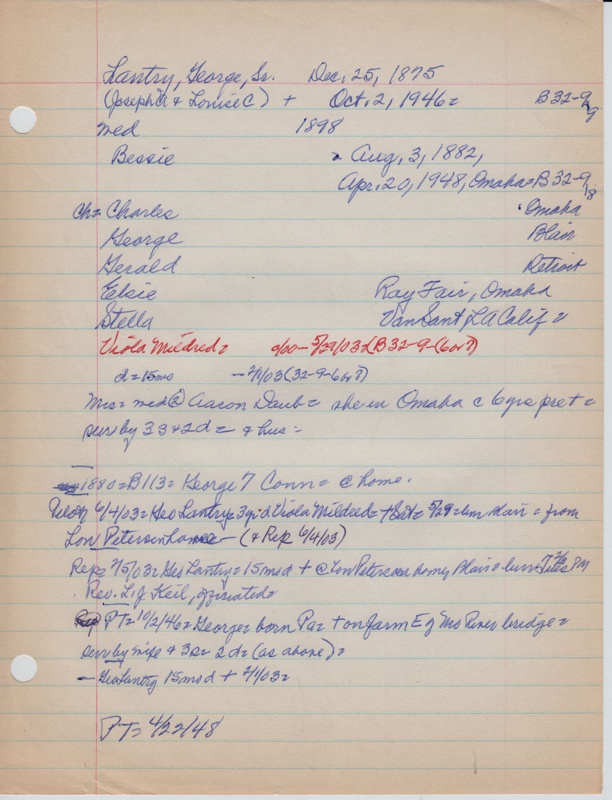 Lantry, George, Sr. Dec. 25, 1875
(Joseph Sr & Louise C) + Oct. 2, 1946= B32-9-9
med 1898
Bessie Aug. 3, 1882,
Apr. 20, 1948, Omaha=B32-9-8
ch= Charles Omaha
George Blair
Gerald Detroit
Elsie Ray Fair, Omaha
Stella Van Sant, LA Calif =
Viola Mildred= c/00-5/29/03=(B32-9-(6or7)
d=15mo -7/1/03(32-9-6or7)
Mrs= med@ Aaron Daub= she in Omaha c 6yrs pret=
surv by 3s+2d= & hus=
1880=B113= George 7 Conn= @ home.
6/4/03= Geo Lantry= 3yr d Viola Mildred= + Sat= 5/29= from
Lon Petersen home- (& Rep 6/4/03)
Rep= 7/5/03= Geo Lantry= 15mo d + @ Lon Petersen home, Blair= PM
Rev. L.J. Keil, officiated=
PT= 10/2/46= George= born Pa= + on farm E of Mo River bridge=
surv by wife & 3s= 2d= (as above)=
- Geo Lantry 15mo d + 7/1/03=
PT= 4/22/48